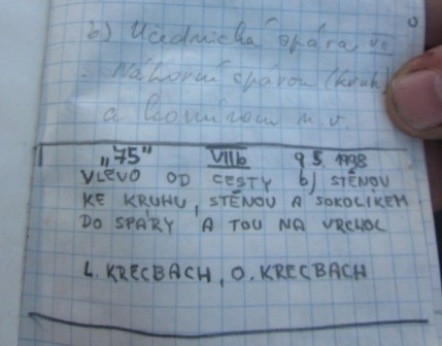 b) Učednická spára vc
Náhorní spárou (kruh)
a komínem n.v.
"75" VIIb 9 5. 1998
VLEVO OD CESTY b) STĚNOU
KE KRUHU, STĚNOU A SOKOLÍKEM
DO SPÁRY A TOU NA VRCHOL
L. KRECBACH, O. KRECBACH